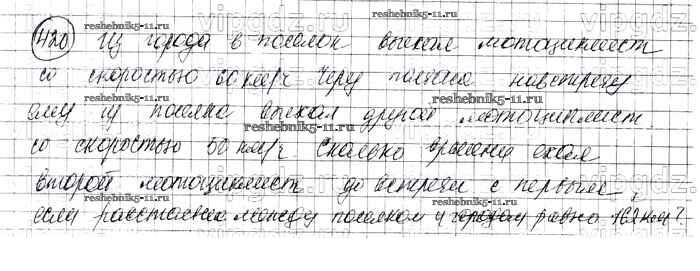 reshebnik5-11.ru
420 Из города в поселок выехал мотоциклист
reshebnik5-11.ru
со скоростью 60 км/ч Через полчаса навстречу
reshebnik5-11.ru
ему из поселка выехал другой мотоциклист
reshebnik5-11.ru
со скоростью 50 км/ч Сколько времени ехал
vipgdz.
второй мотоциклист до встречи с первым,
reshebnik5-11.ru
если расстояние между поселком и городом равно 162 км?
reshebnik5-11.ru